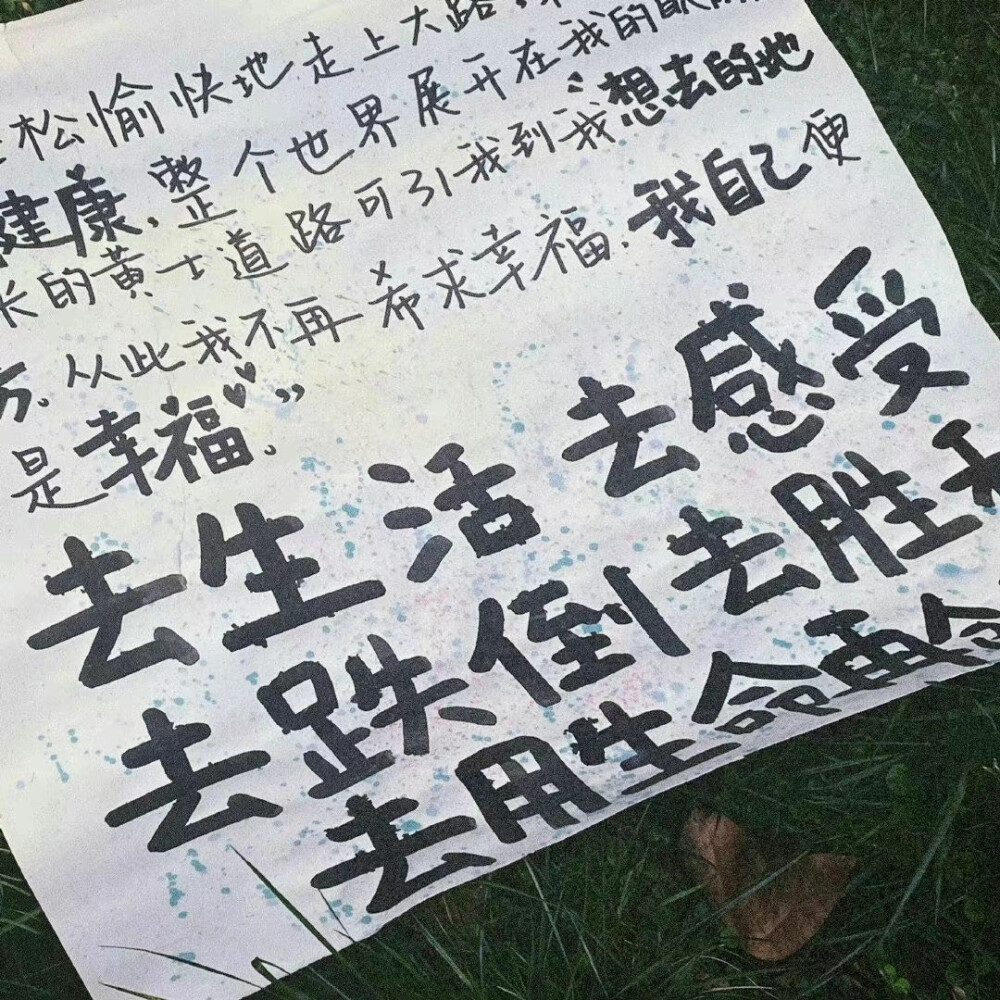 松愉快地走上大路,
健康,整个世界展开在我的眼
长的黄土道路可引我到我想去的地
方.从此我不再希求幸福.我自己便
是幸福.”
去生活 去感受
去跌倒 去胜利
去用生命再创